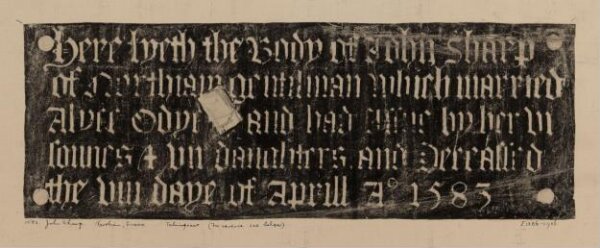 Here lyeth the Body of John Sharp
of Northiam gentilman which married
Alyce Odye and had by her vi
sonnes & vii daughters and Deceassed
the viii daye of Aprill Aº 1583